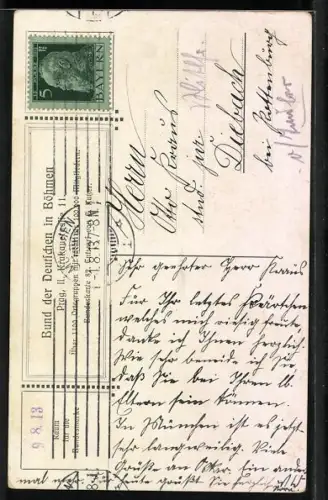 5 BAYERN
Bund der Deutschen in Böhmen
Prag, II., Krakauergasse 11.
über 1100 Ortsgruppen mit mehr als 100.000 Mitgliedern.
Bundeskarte 87. Entworfen von Kutzer.
Raum
für die
Bundesmarke
9 8.13
Herrn
Otto Kraus
stud. jur.
Diebach
bei Rottenburg
o/Tauber
Sehr geehrter Herr Kraus
Für Ihr letztes Kärtchen
welches mich riesig freute,
danke ich Ihnen herzlich.
Wie sehr beneide ich Sie
daß Sie bei Ihren lb.
Eltern sein können.
In München ist es jetzt
sehr langweilig. Viele
Grüße an Oskar. Ein ander
mal mehr. Für heute grüßt Sie